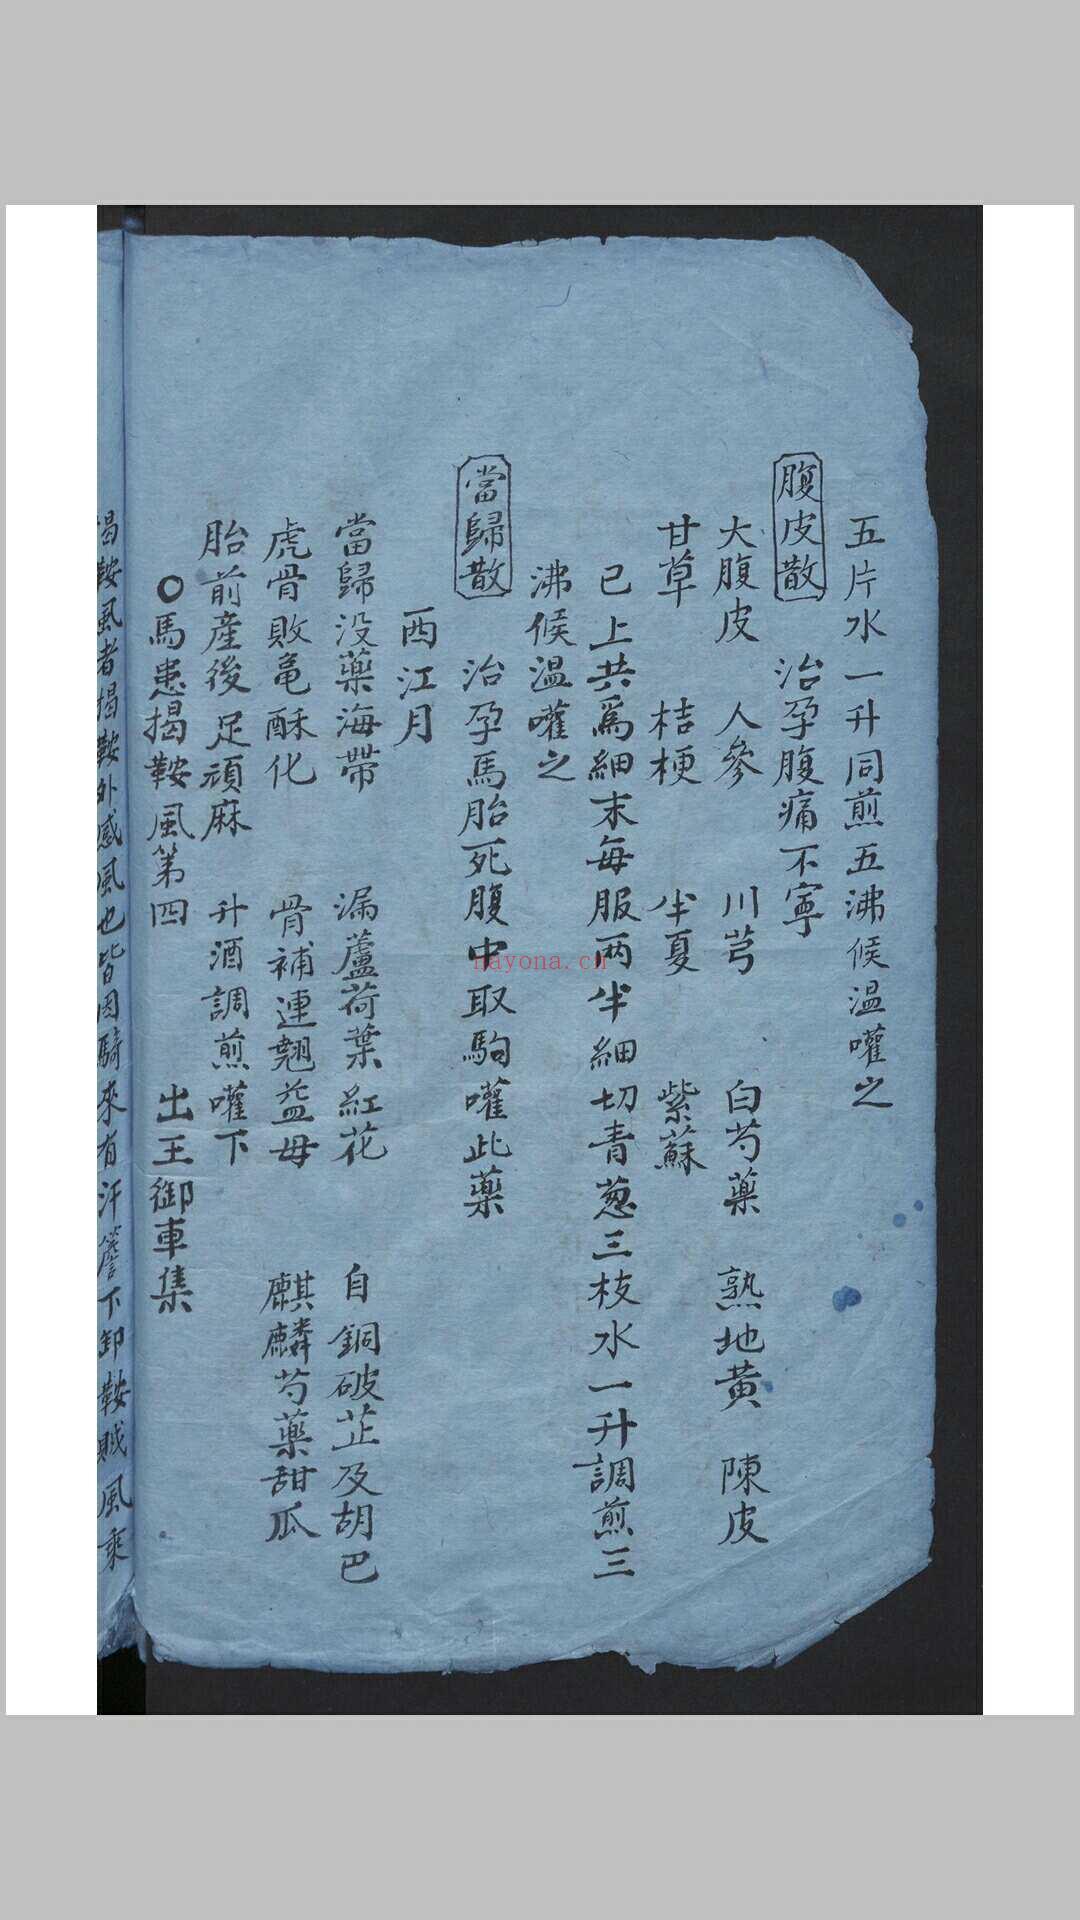 五片水一升同煎五沸候温嚾之
腹皮散
治孕腹痛不寧
大腹皮 人參 川芎 白芍藥 熟地黄 陳皮
甘草 桔梗 半夏 紫蘇
已上共爲細末每服两半細切青葱三枝水一升調煎三
沸候温嚾之
當歸散
治孕馬胎死腹中取駒嚾此藥
西江月
當歸没藥海帶 漏蘆荷葉紅花 自銅破芷及胡巴
虎骨敗亀酥化 骨補連翹益母 麒麟芍藥甜瓜
胎前産後足頑麻 升酒調煎嚾下
○馬患揭鞍風第四 出王御車集
揭鞍風者揭鞍外感風也皆因騎來有汗簷下卸鞍賊風乘
nayona.cn